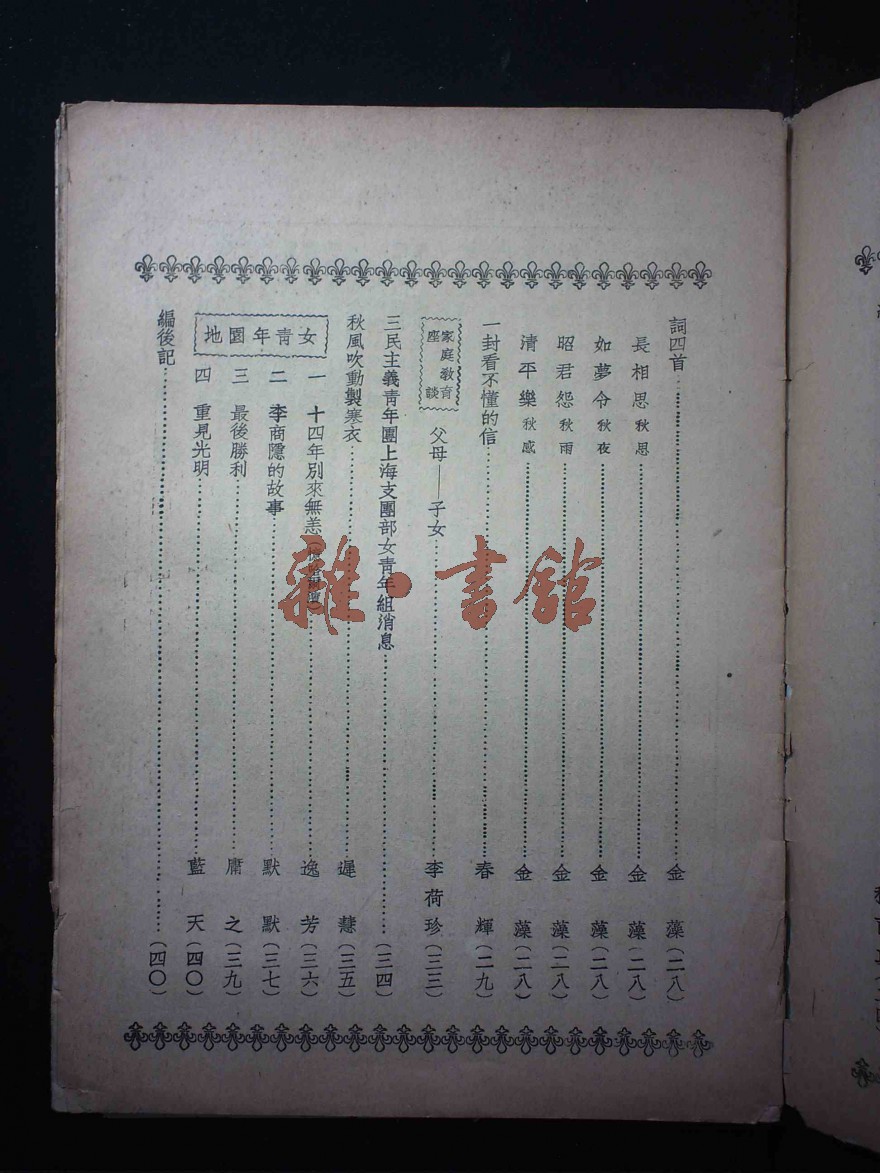 詞四首……金藻(二八)
長相思 秋思……金藻(二八)
如夢令 秋夜……金藻(二八)
昭君怨 秋雨……金藻(二八)
清平樂 秋感……金藻(二八)
一封看不懂的信……春輝(二九)
家庭教育座談
父母——子女……李荷珍(三三)
三民主義青年團上海支團部女青年組消息……(三四)
秋風吹動製寒衣……遲慧(三五)
女青年園地
一 十四年別來無恙……逸芳(三六)
二 李商隱的故事……默默(三七)
三 最後勝利……庸之(三九)
四 重見光明……藍天(四〇)
編後記……(四〇)
雜·書館